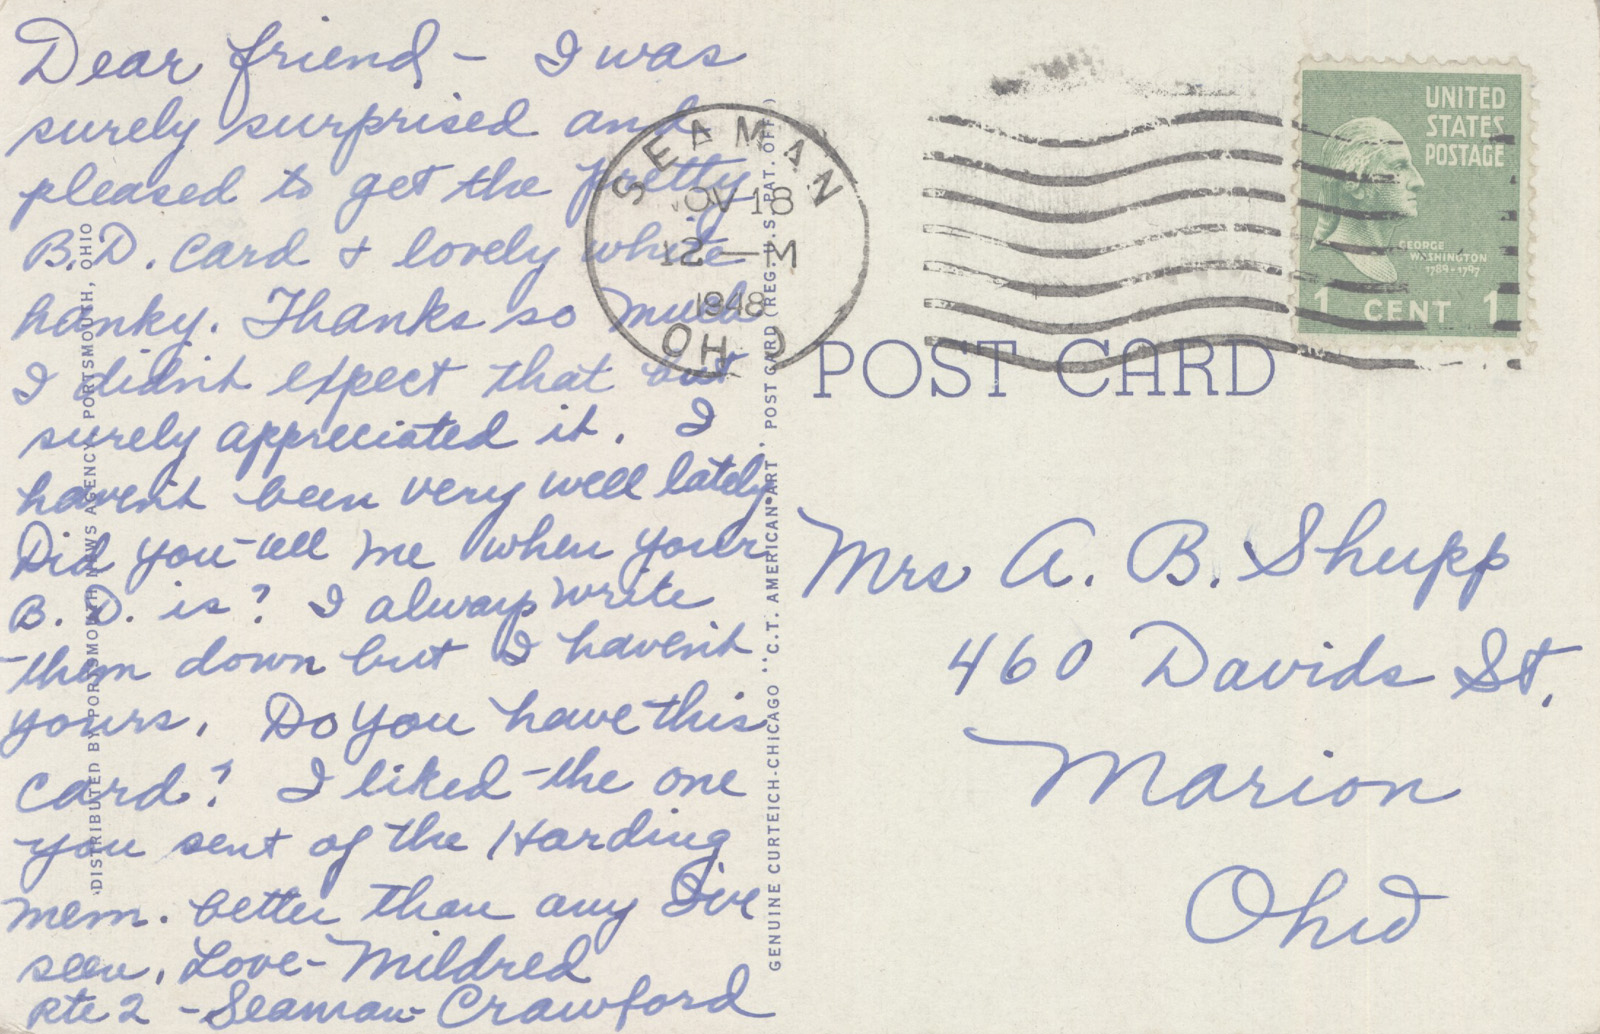 Dear friend, - I was
surely surprised and
pleased to get the pretty
B.D. card + lovely white
hanky. Thanks so much
I didn't expect that but
surely appreciated it. I
haven't been very well lately.
Did you tell me when your
B.D. is? I always write
them down but I haven't
yours. Do you have this
card? I liked the one
you sent of the Harding
mem. better than any I've
seen. Love - Mildred
Rte 2 - Seaman Crawford
DISTRIBUTED BY PORTSMOUTH NEWS AGENCY, PORTSMOUTH, OHIO
GENUINE CURTEICH-CHICAGO "C.T. AMERICAN ART" POST CARD (REG. U.S. PAT. OFF.)
SEAMAN
NOV 18
12 — M
1948
OHIO
UNITED
STATES
POSTAGE
GEORGE
WASHINGTON
1789-1797
1 CENT 1
POST CARD
Mrs A. B. Shupp
460 Davids St.
Marion
Ohio